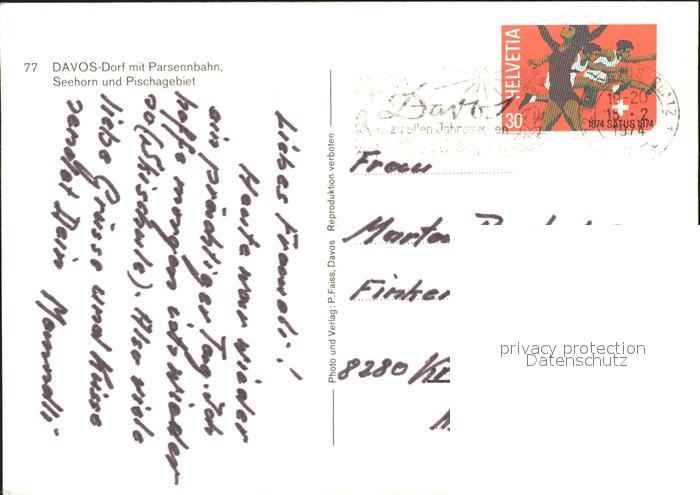 77 DAVOS-Dorf mit Parsennbahn,
Seehorn und Pischagebiet
Liebes Fraueli!
Heute war wieder
ein prächtiger Tag. Ich
hoffe morgen ists wieder
so (Skischule). Also viele
liebe Grüsse und Küsse
sendet Dein Mannelli-
Photo und Verlag: P. Faiss, Davos Reproduktion verboten
HELVETIA
30
1874 SATUS 1974
Davos
zu allen Jahreszeiten
19-20
1974
Frau
8280
privacy protection
Datenschutz